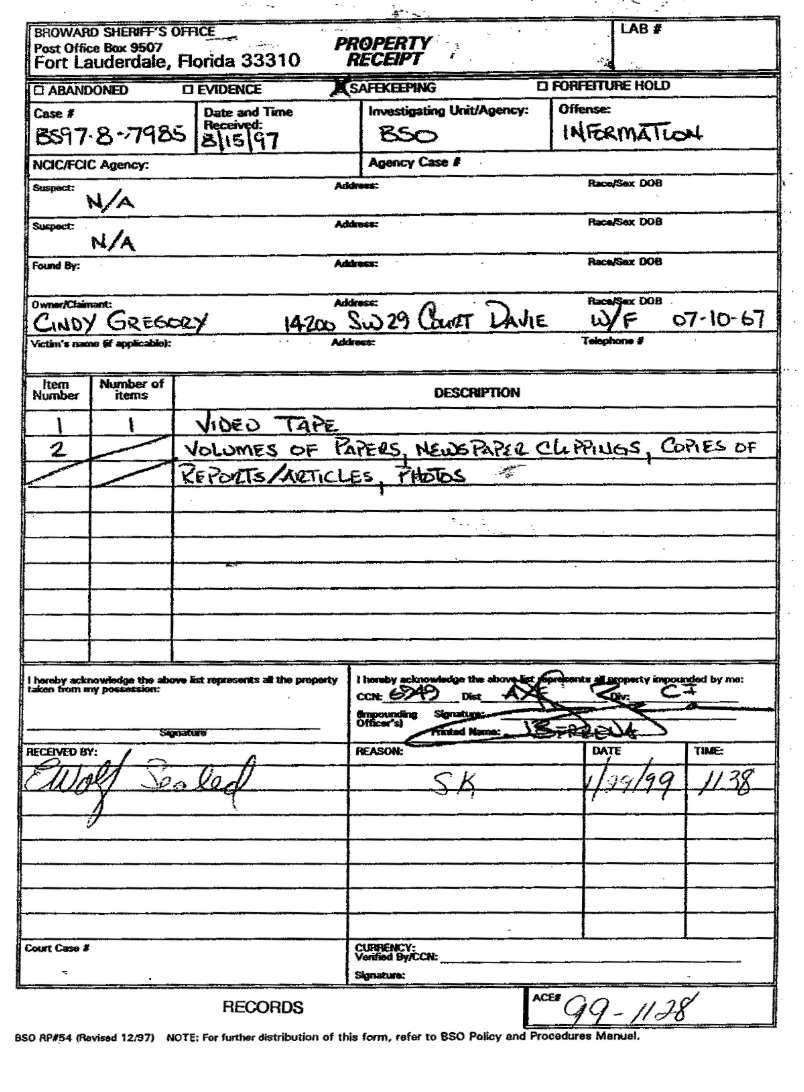 BROWARD SHERIFF'S OFFICE
Post Office Box 9507
Fort Lauderdale, Florida 33310
PROPERTY
RECEIPT
LAB #
ABANDONED EVIDENCE SAFEKEEPING FORFEITURE HOLD
Case #
BS97-8-7985
Date and Time
Received:
8/15/97
Investigating Unit/Agency:
BSO
Offense:
INFORMATION
NCIC/FCIC Agency: Agency Case #
Suspect: Address: Race/Sex DOB
N/A
Suspect: Address: Race/Sex DOB
N/A
Found By: Address: Race/Sex DOB
Owner/Claimant: Address: Race/Sex DOB
CINDY GREGORY 14200 SW 29 COURT DAVIE W/F 07-10-67
Victim's name (if applicable): Address: Telephone #
Item
Number
Number of
items
DESCRIPTION
1 1 VIDEO TAPE
2 VOLUMES OF PAPERS, NEWSPAPER CLIPPINGS, COPIES OF
REPORTS/ARTICLES, PHOTOS
I hereby acknowledge the above list represents all the property
taken from my possession:
Signature
I hereby acknowledge the above list represents all property impounded by me:
CCN: 6949 Dist Div: CI
(Impounding
Officer's)
Signature:
Printed Name:
RECEIVED BY: REASON: DATE TIME:
EWolf Sealed SK 1/29/99 1138
Court Case #
CURRENCY:
Verified By/CCN:
Signature:
RECORDS
ACE# 99-1128
BSO RP#54 (Revised 12/97) NOTE: For further distribution of this form, refer to BSO Policy and Procedures Manuel.